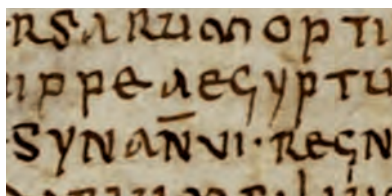 rsarum opti
ippe aegyptu
syn an̄ vi· regn